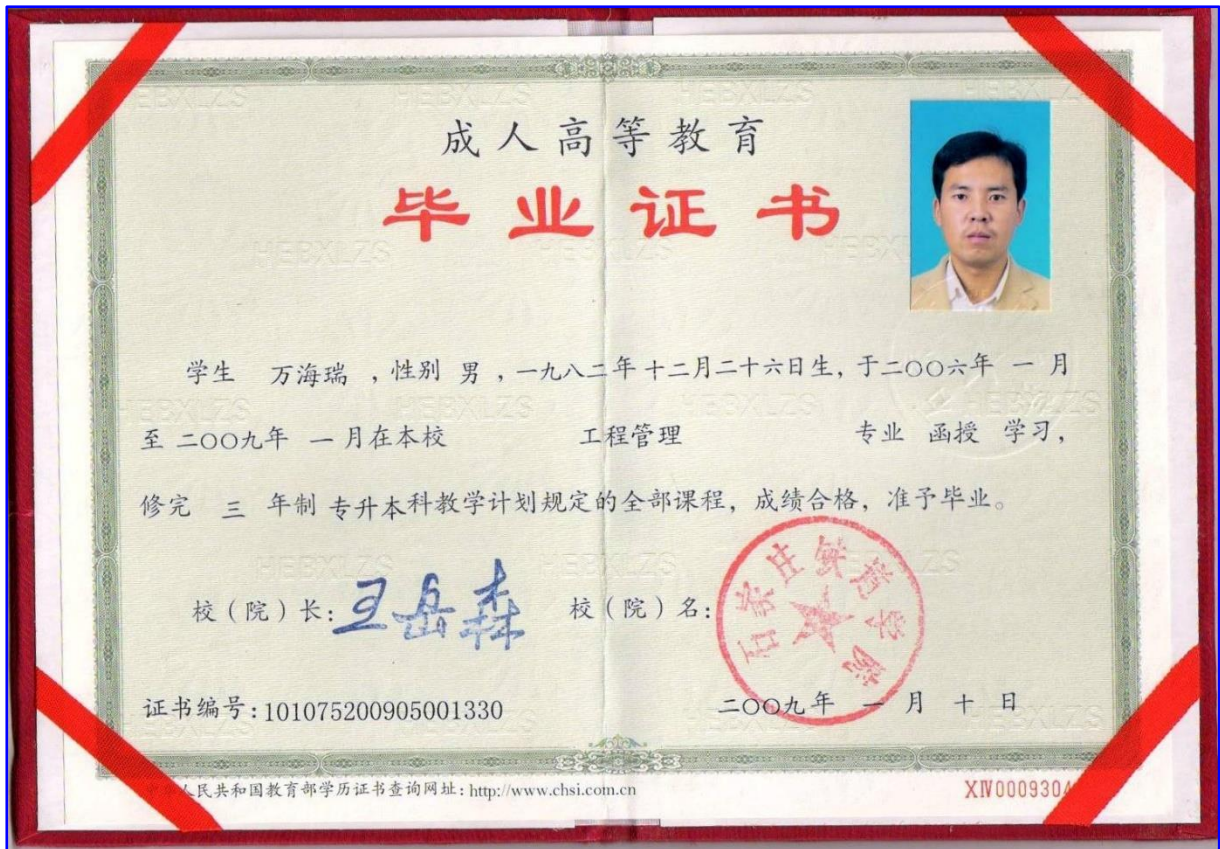 成人高等教育
毕业证书
学生 万海瑞 ，性别 男 ，一九八二年 十二月二十六日生，于二〇〇六年 一 月
至 二〇〇九年 一 月在本校 工程管理 专业 函授 学习，
修完 三 年制 专升本科教学计划规定的全部课程，成绩合格，准予毕业。
校（院）长：王岳森 校（院）名：
石家庄铁道学院
证书编号：101075200905001330 二〇〇九年 一 月 十 日
人民共和国教育部学历证书查询网址：http://www.chsi.com.cn
XIV000930
HEBXLZS